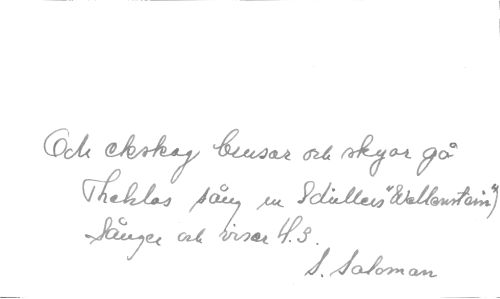 Och ekskog brusar och skyar gå
Theklas sång ur Schillers "Wallenstein")
Sånger och visor H.3.
S. Saloman